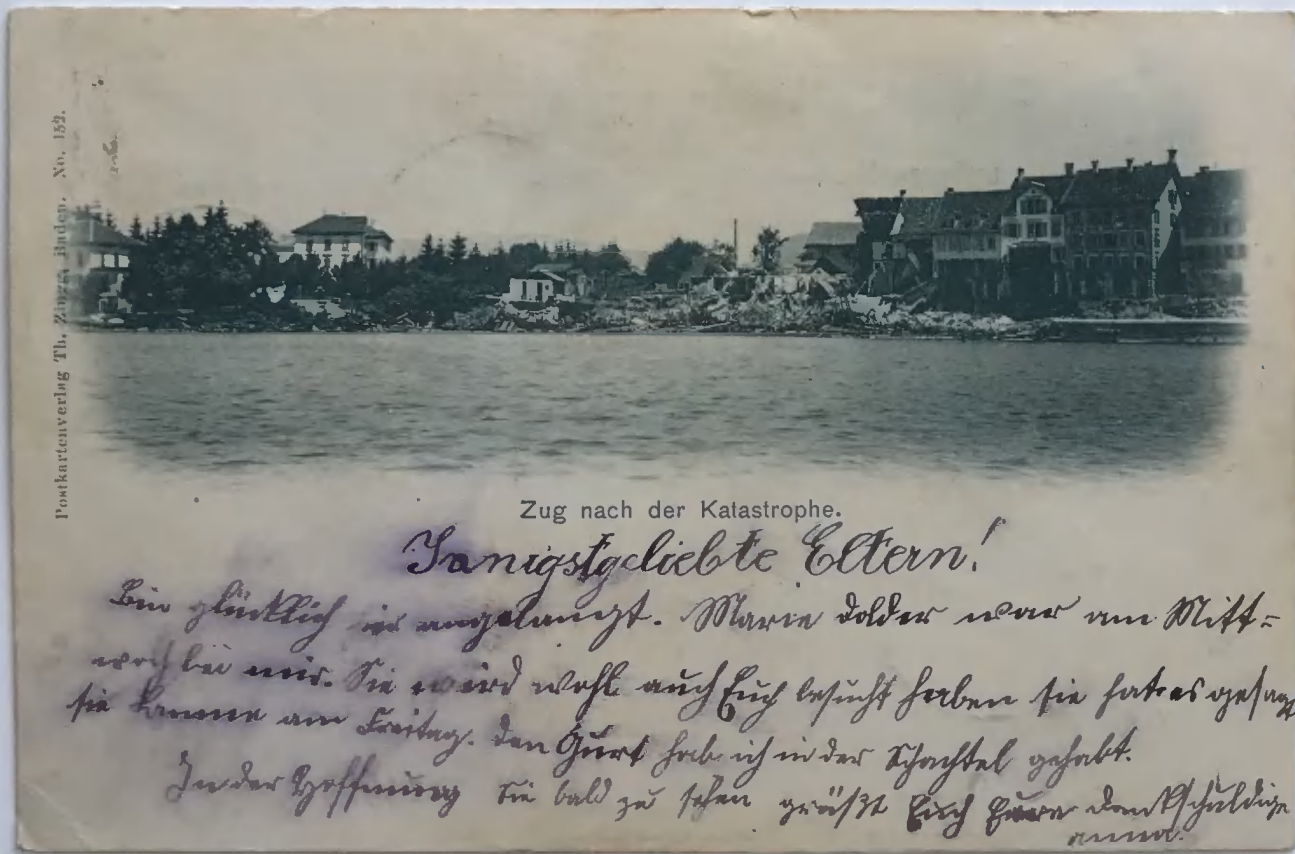 Postkartenverlag Th. Zingg, Baden. No. 152.
Zug nach der Katastrophe.
Innigstgeliebte Eltern!
Bin glücklich angelangt. Marie Dolder war am Mitt=
woch bei mir. Sie wird wohl auch Euch besucht haben sie hat es gesagt
sie komme am Freitag. Den Gurt hab ich in der Schachtel gehabt.
In der Hoffnung Sie bald zu sehen grüßt Euch Eure dankschuldige
Anna.